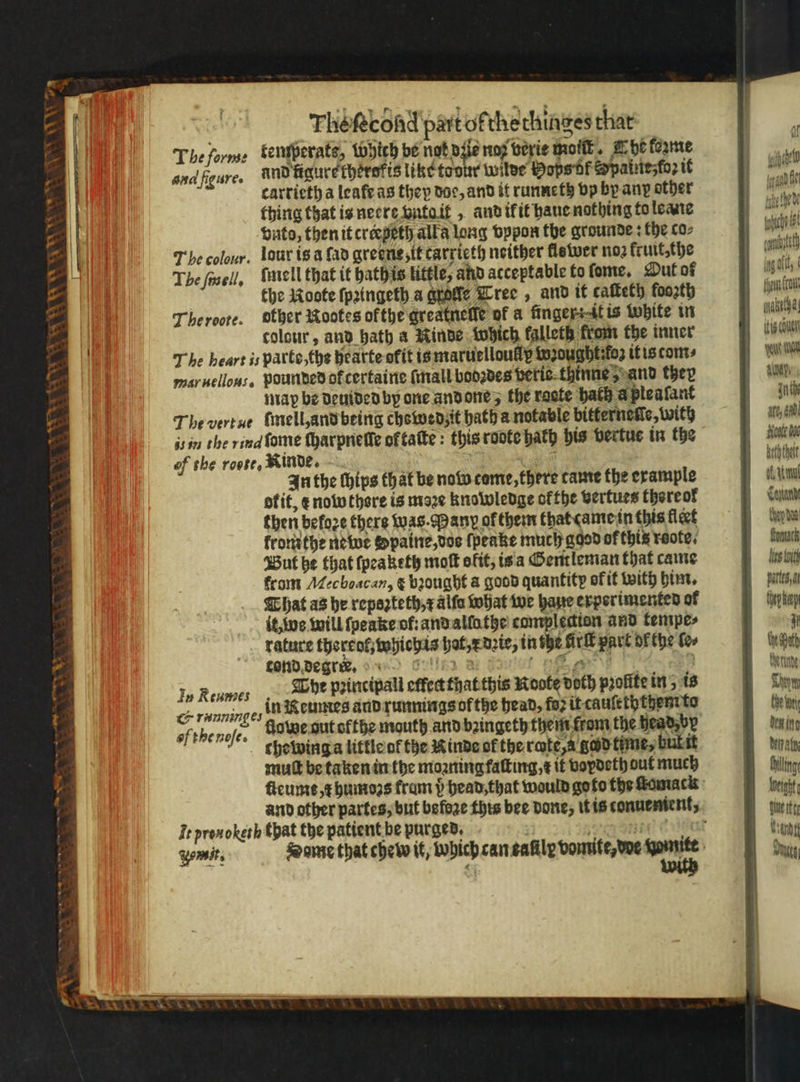 The second part of the things that
The forme
and figure.
temperate, which be not drie nor verie moist. The forme
and figure therof is like to our wilde Hops of Spaine, for it
carrieth a leafe as they doe, and it runneth vp by any other
thing that is neere vnto it, and if it haue nothing to leane
vnto, then it créepeth all a long vppon the grounde: the co-
The colour.
lour is a sad greene, it carrieth neither flower nor fruit, the
The smell.
smell that it hath is little, and acceptable to some. Out of
the Roote springeth a grosse Tree, and it casteth foorth
The roote.
other Rootes of the greatnesse of a finger: it is white in
colour, and hath a Rinde which falleth from the inner
The heart is
maruellous.
parte, the hearte of it is maruellously wrought: for it is com-
pounded of certaine small boordes verie thinne, and they
may be deuided by one and one, the roote hath a pleasant
The vertue
is in the rind
of the roote.
smell, and being chewed, it hath a notable bitternesse, with
some sharpnesse of taste: this roote hath his vertue in the
Rinde.
In the ships that be now come, there came the example
of it, & now there is more knowledge of the vertues thereof
then before there was. Many of them that came in this fleet
from the newe Spaine, doe speake much good of this roote.
But he that speaketh most of it, is a Gentleman that came
from Mechoacan, & brought a good quantity of it with him.
That as he reporteth, & also what we haue experimented of
it, we will speake of: and also the complection and tempe-
rature thereof, which is hot, & drie, in the first part of the se-
cond degrée.
In Reumes
& runninges
of the nose.
The principall effect that this Roote doth profite in, is
in Reumes and runnings of the head, for it causeth them to
flowe out of the mouth and bringeth them from the head, by
chewing a little of the Rinde of the roote, a good time, but it
must be taken in the morning fasting, & it voydeth out much
fleume, & humors from ẙ head, that would go to the stomack
and other partes, but before this bee done, it is conuenient,
It prouoketh
vomit.
that the patient be purged.
Some that chew it, which can easily vomite, doe vomite
with